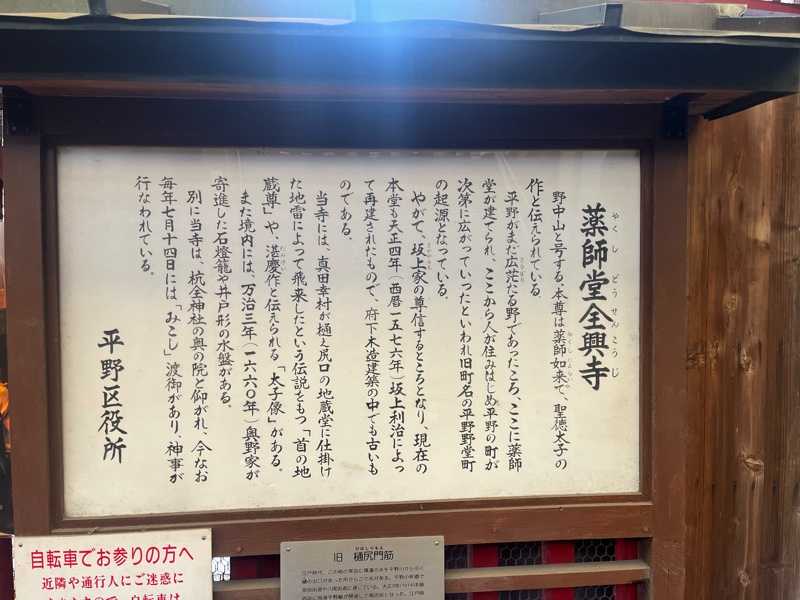 薬師堂全興寺
やくし どう せん こう じ
野中山と号する。本尊は薬師如来で、聖徳太子の
作と伝えられている。
平野がまだ広茫たる野であったころ、ここに薬師
堂が建てられ、ここから人が住みはじめ平野の町が
次第に広がっていったといわれ旧町名の平野野堂町
の起源となっている。
やがて、坂上家の尊信するところとなり、現在の
本堂も天正四年(西暦一五七六年)坂上利治によっ
て再建されたもので、府下木造建築の中でも古いも
のである。
当寺には、真田幸村が樋之尻口の地蔵堂に仕掛け
た地雷によって飛来したという伝説をもつ「首の地
蔵尊」や、湛慶作と伝えられる「太子像」がある。
また境内には、万治三年(一六六〇年)奥野家が
寄進した石燈籠や井戸形の水盤がある。
別に当寺は、杭全神社の奥の院と仰がれ、今なお
毎年七月十四日には「みこし」渡御があり、神事が
行なわれている。
平野区役所
自転車でお参りの方へ
近隣や通行人にご迷惑に
旧 樋尻門筋
ひのしりもん